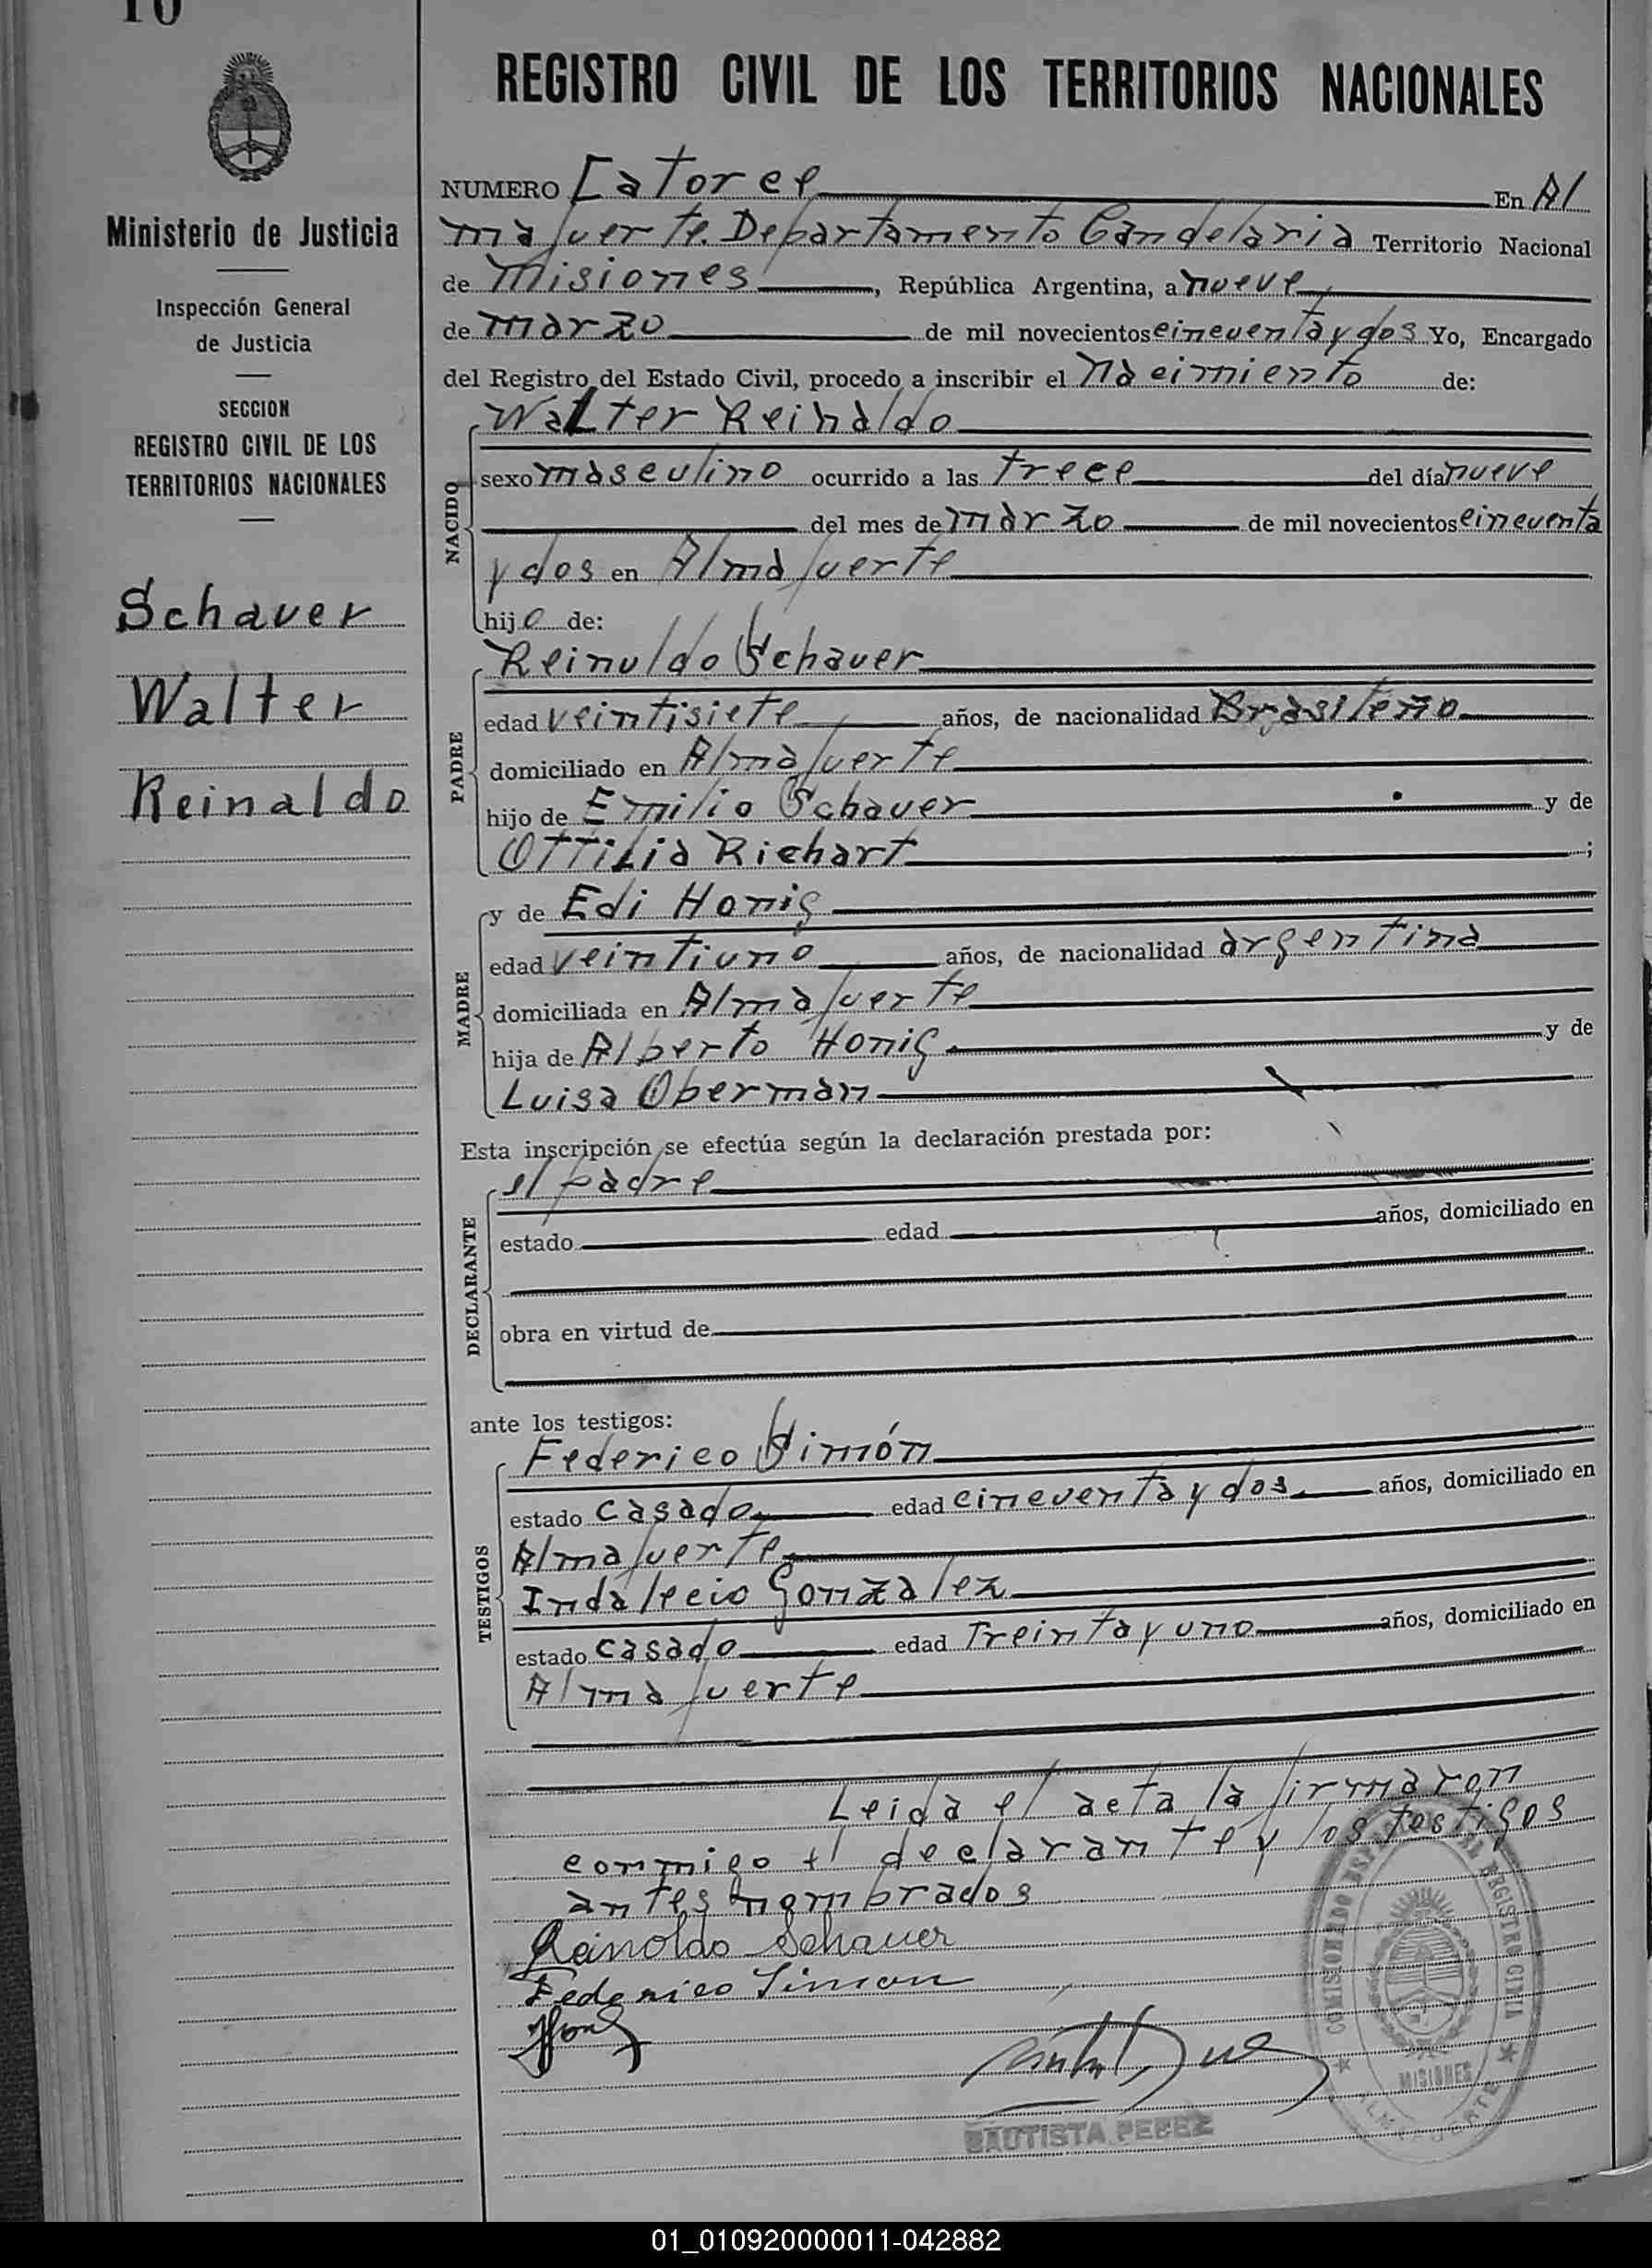 10
REGISTRO CIVIL DE LOS TERRITORIOS NACIONALES
Ministerio de Justicia
Inspección General
de Justicia
SECCION
REGISTRO CIVIL DE LOS
TERRITORIOS NACIONALES
Schauer
Walter
Reinaldo
NUMERO Catorce En Al
mafuerte. Departamento Candelaria Territorio Nacional
de Misiones, República Argentina, a nueve
de marzo de mil novecientos cincuenta y dos Yo, Encargado
del Registro del Estado Civil, procedo a inscribir el Nacimiento de:
NACIDO
Walter Reinaldo
sexo masculino ocurrido a las trece del día nueve
del mes de marzo de mil novecientos cincuenta
y dos en Almafuerte
hijo de:
PADRE
Reinoldo Schauer
edad veintisiete años, de nacionalidad Brasileño
domiciliado en Almafuerte
hijo de Emilio Schauer y de
Ottilia Richart ;
MADRE
y de Edi Honig
edad veintiuno años, de nacionalidad argentina
domiciliada en Almafuerte
hija de Alberto Honig y de
Luisa Oberman
Esta inscripción se efectúa según la declaración prestada por:
DECLARANTE
el padre
estado edad años, domiciliado en
obra en virtud de
ante los testigos:
TESTIGOS
Federico Simón
estado casado edad cincuenta y dos años, domiciliado en
Almafuerte
Indalecio Gonzalez
estado casado edad Treinta y uno años, domiciliado en
Almafuerte
Leida el acta la firmaron
conmigo el declarante y los testigos
antes nombrados
Reinoldo Schauer
Federico Simon
BAUTISTA PEREZ
COMISIONADO REGISTRO CIVIL
MISIONES
ALMAFUERTE
01_010920000011-042882